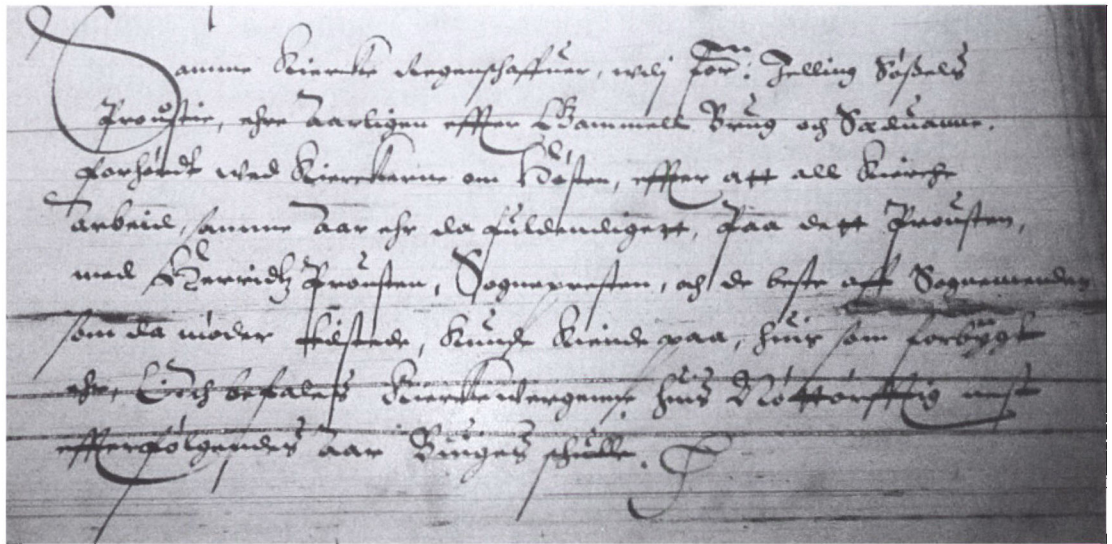 Samme Kiercke Regenschaffuer, udj for: Jelling Sÿszels
Proustie, ehre Aarligen effter Gammell Brug och Sæduanne,
forhördt wed Kierckerne om Hösten, effter att all Kircke
Arbeid, samme Aar ehr da fuldendigett, Paa dett Prousten,
med Herridtz Prousten, Sognepresten, och de beste aff Sognemenden
som da möder tilstede, kunde kiende paa, huis som forbÿgt
ehr, Och befales Kierckewergerne huis Nöttörfftig nest
effterfölgendes Aar Bÿges schulle.